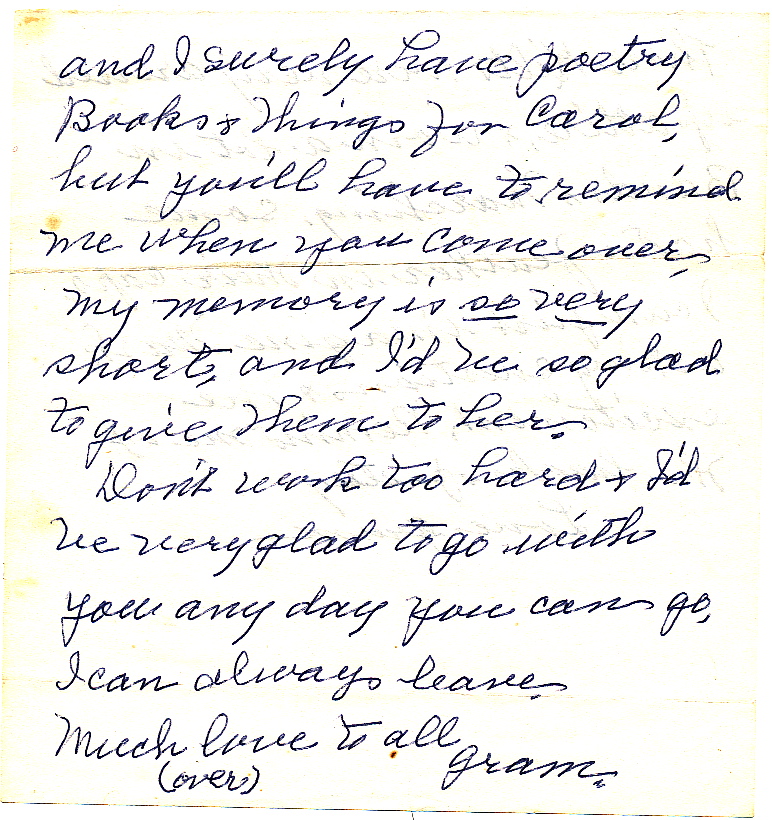 and I surely have poetry
Books & things for Carol,
but you'll have to remind
me when you come over,
my memory is so very
short, and I'd be so glad
to give them to her.
Don't work too hard & I'd
be very glad to go with
you any day you can go,
I can always leave.
Much love to all
gram.
(over)